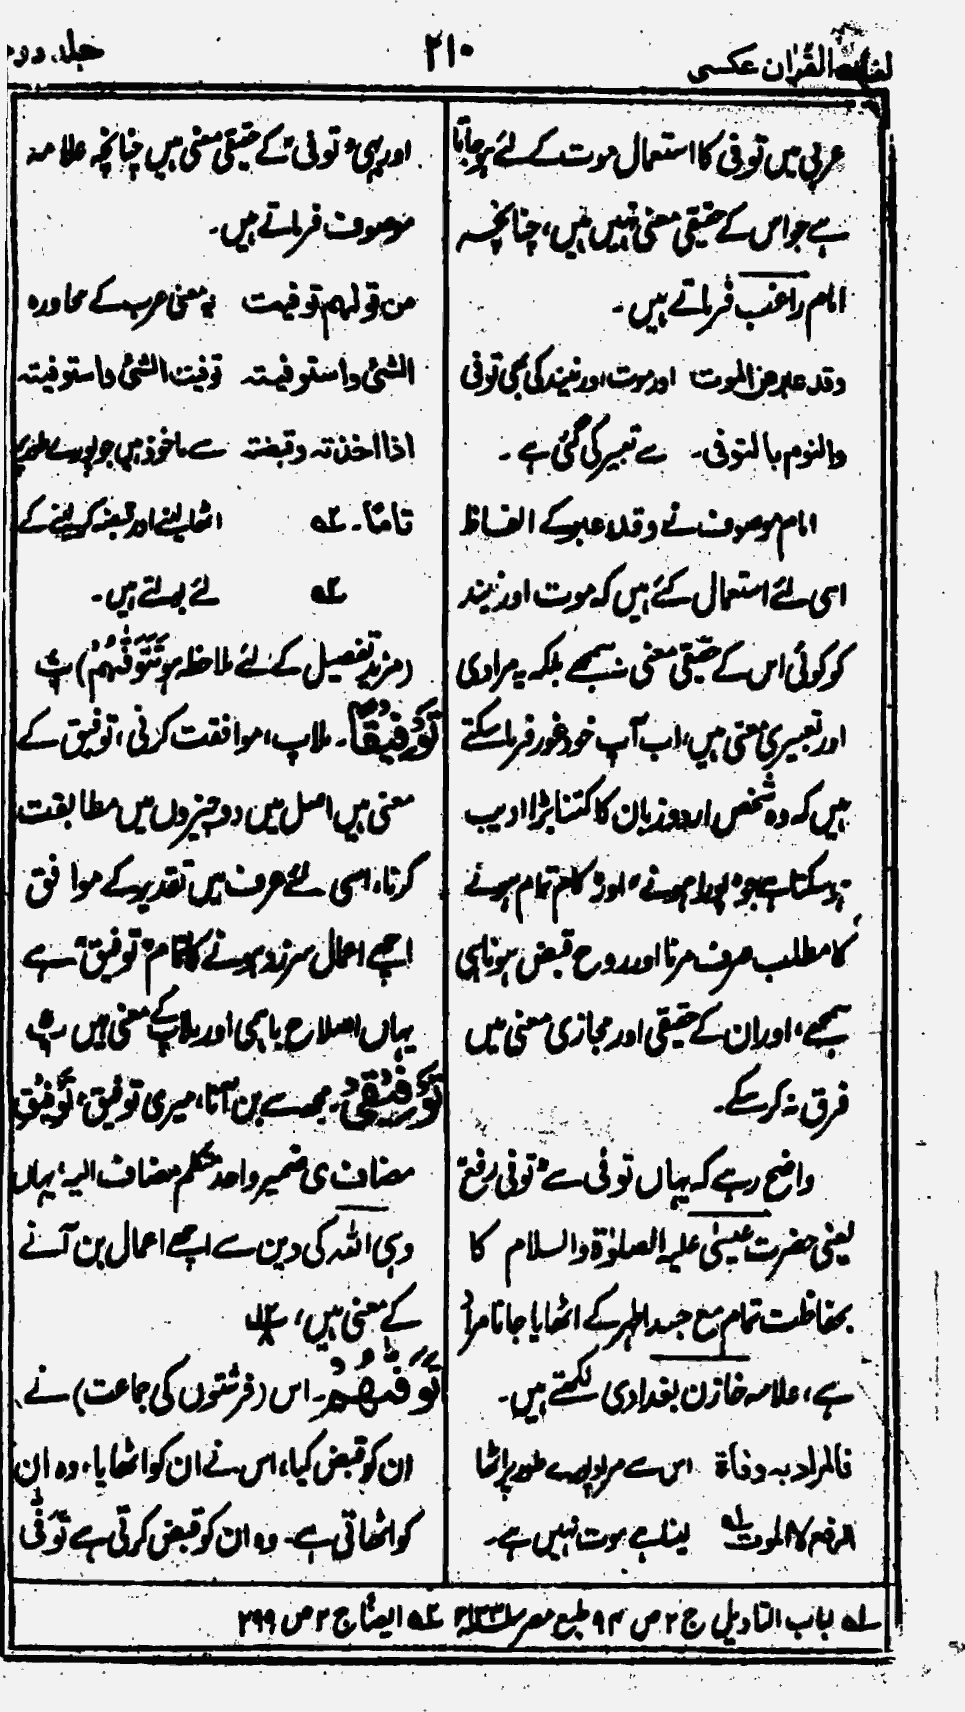 لغات القرآن عکسی
۲۱۰
جلد دوم
عربی میں توفی کا استعمال موت کے لئے ہوجاتا
ہے جو اس کے حقیقی معنی نہیں ہیں، چنانچہ
امام راغب فرماتے ہیں۔
وقد عبر عن الموت اور موت اور نیند کی بھی توفی
والنوم بالتوفی۔ سے تعبیر کی گئی ہے۔
امام موصوف نے وقد عبر کے الفاظ
اسی لئے استعمال کئے ہیں کہ موت اور نیند
کو کوئی اس کے حقیقی معنی نہ سمجھے بلکہ یہ مرادی
اور تعبیری معنی ہیں، اب آپ خود غور فرما سکتے
ہیں کہ وہ شخص اردو زبان کا کتنا بڑا ادیب
ہوسکتا ہے جو "پورا ہونے" اور "کام تمام ہونے"
کا مطلب صرف مرنا اور روح قبض ہونا ہی
سمجھے، اور ان کے حقیقی اور مجازی معنی میں
فرق نہ کرسکے۔
واضح رہے کہ یہاں توفی سے "توفی رفع"
یعنی حضرت عیسیٰ علیہ الصلوٰۃ والسلام کا
بحفاظت تمام مع جسد اطہر کے اٹھایا جانا مراد
ہے، علامہ خازن بغدادی لکھتے ہیں۔
فالمراد بہ وفاۃ اس سے مراد پورے طور پر اٹھا
الرفع لا الموت لہ لینا ہے موت نہیں ہے۔
اور یہی "توفی" کے حقیقی معنی ہیں چنانچہ علامہ
موصوف فرماتے ہیں۔
من قولہم توفیت یہ معنی عرب کے محاورہ
الشئ واستوفیتہ توفیت الشئ واستوفیتہ
اذا اخذتہ وقبضتہ سے ماخوذ ہیں جو پورے طور پر
تامّا۔ ٢ہ اٹھا لینے اور قبضہ کرلینے کے
٢ہ لئے بولتے ہیں۔
(مزید تفصیل کے لئے ملاحظہ ہو تَتَوَفّٰهُمُ)
تَوْفِيْقًا۔ ملاپ، موافقت کرنی، توفیق کے
معنی ہیں اصل میں دو چیزوں میں مطابقت
کرنا، اسی لئے عرف میں تقدیر کے موافق
اچھے اعمال سرزد ہونے کا نام "توفیق" ہے
یہاں اصلاح باہمی اور ملاپ کے معنی ہیں
تَوْفِيْقِيْ۔ مجھ سے بن آنا، میری توفیق، تَوْفِیْق
مضاف ی ضمیر واحد متکلم مضاف الیہ، یہاں
وہی اللہ کی دین سے اچھے اعمال بن آنے
کے معنی ہیں،
تَوَفَّتْهُمُ۔ اس (فرشتوں کی جماعت) نے
ان کو قبض کیا، اس نے ان کو اٹھایا، وہ ان
کو اٹھاتی ہے۔ وہ ان کو قبض کرتی ہے تَوَفّٰی
لہ لباب التاویل ج ۲ ص ۹۴ طبع مصر ۲ہ ایضًا ج ۲ ص ۲۹۹